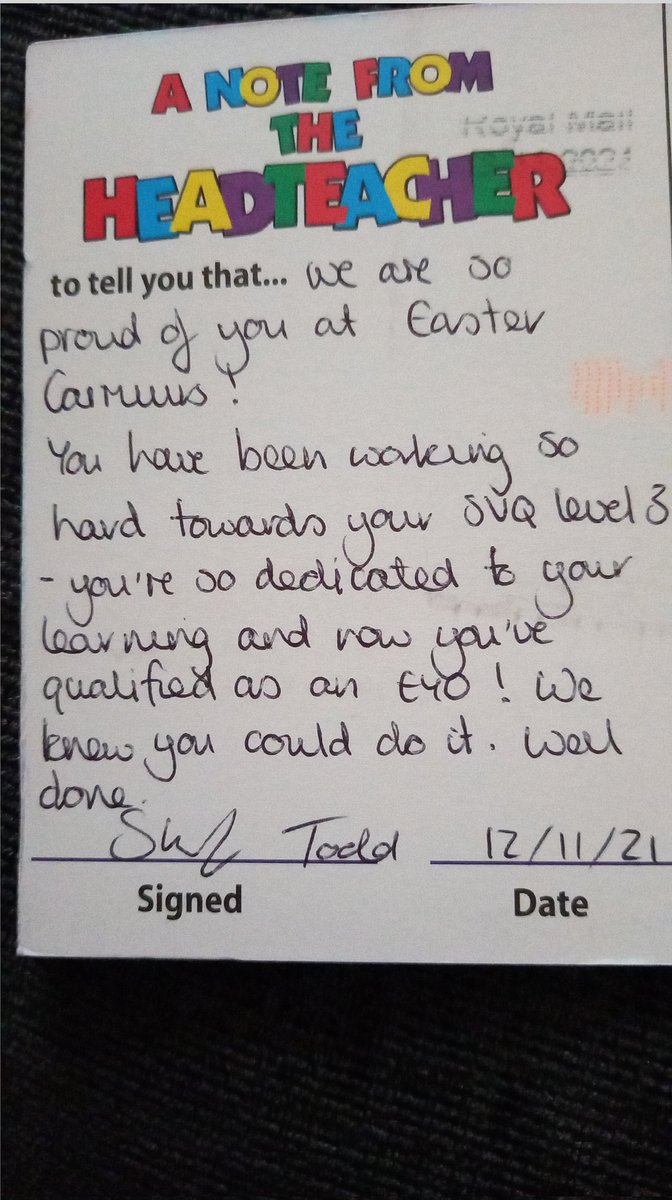 A NOTE FROM
THE
HEADTEACHER
Royal Mail
2021
to tell you that... We are so
proud of you at Easter
Carmuirs!
You have been working so
hard towards your SVQ level 3
- you're so dedicated to your
learning and now you've
qualified as an EYO! We
knew you could do it. Well
done.
Todd 12/11/21
Signed Date